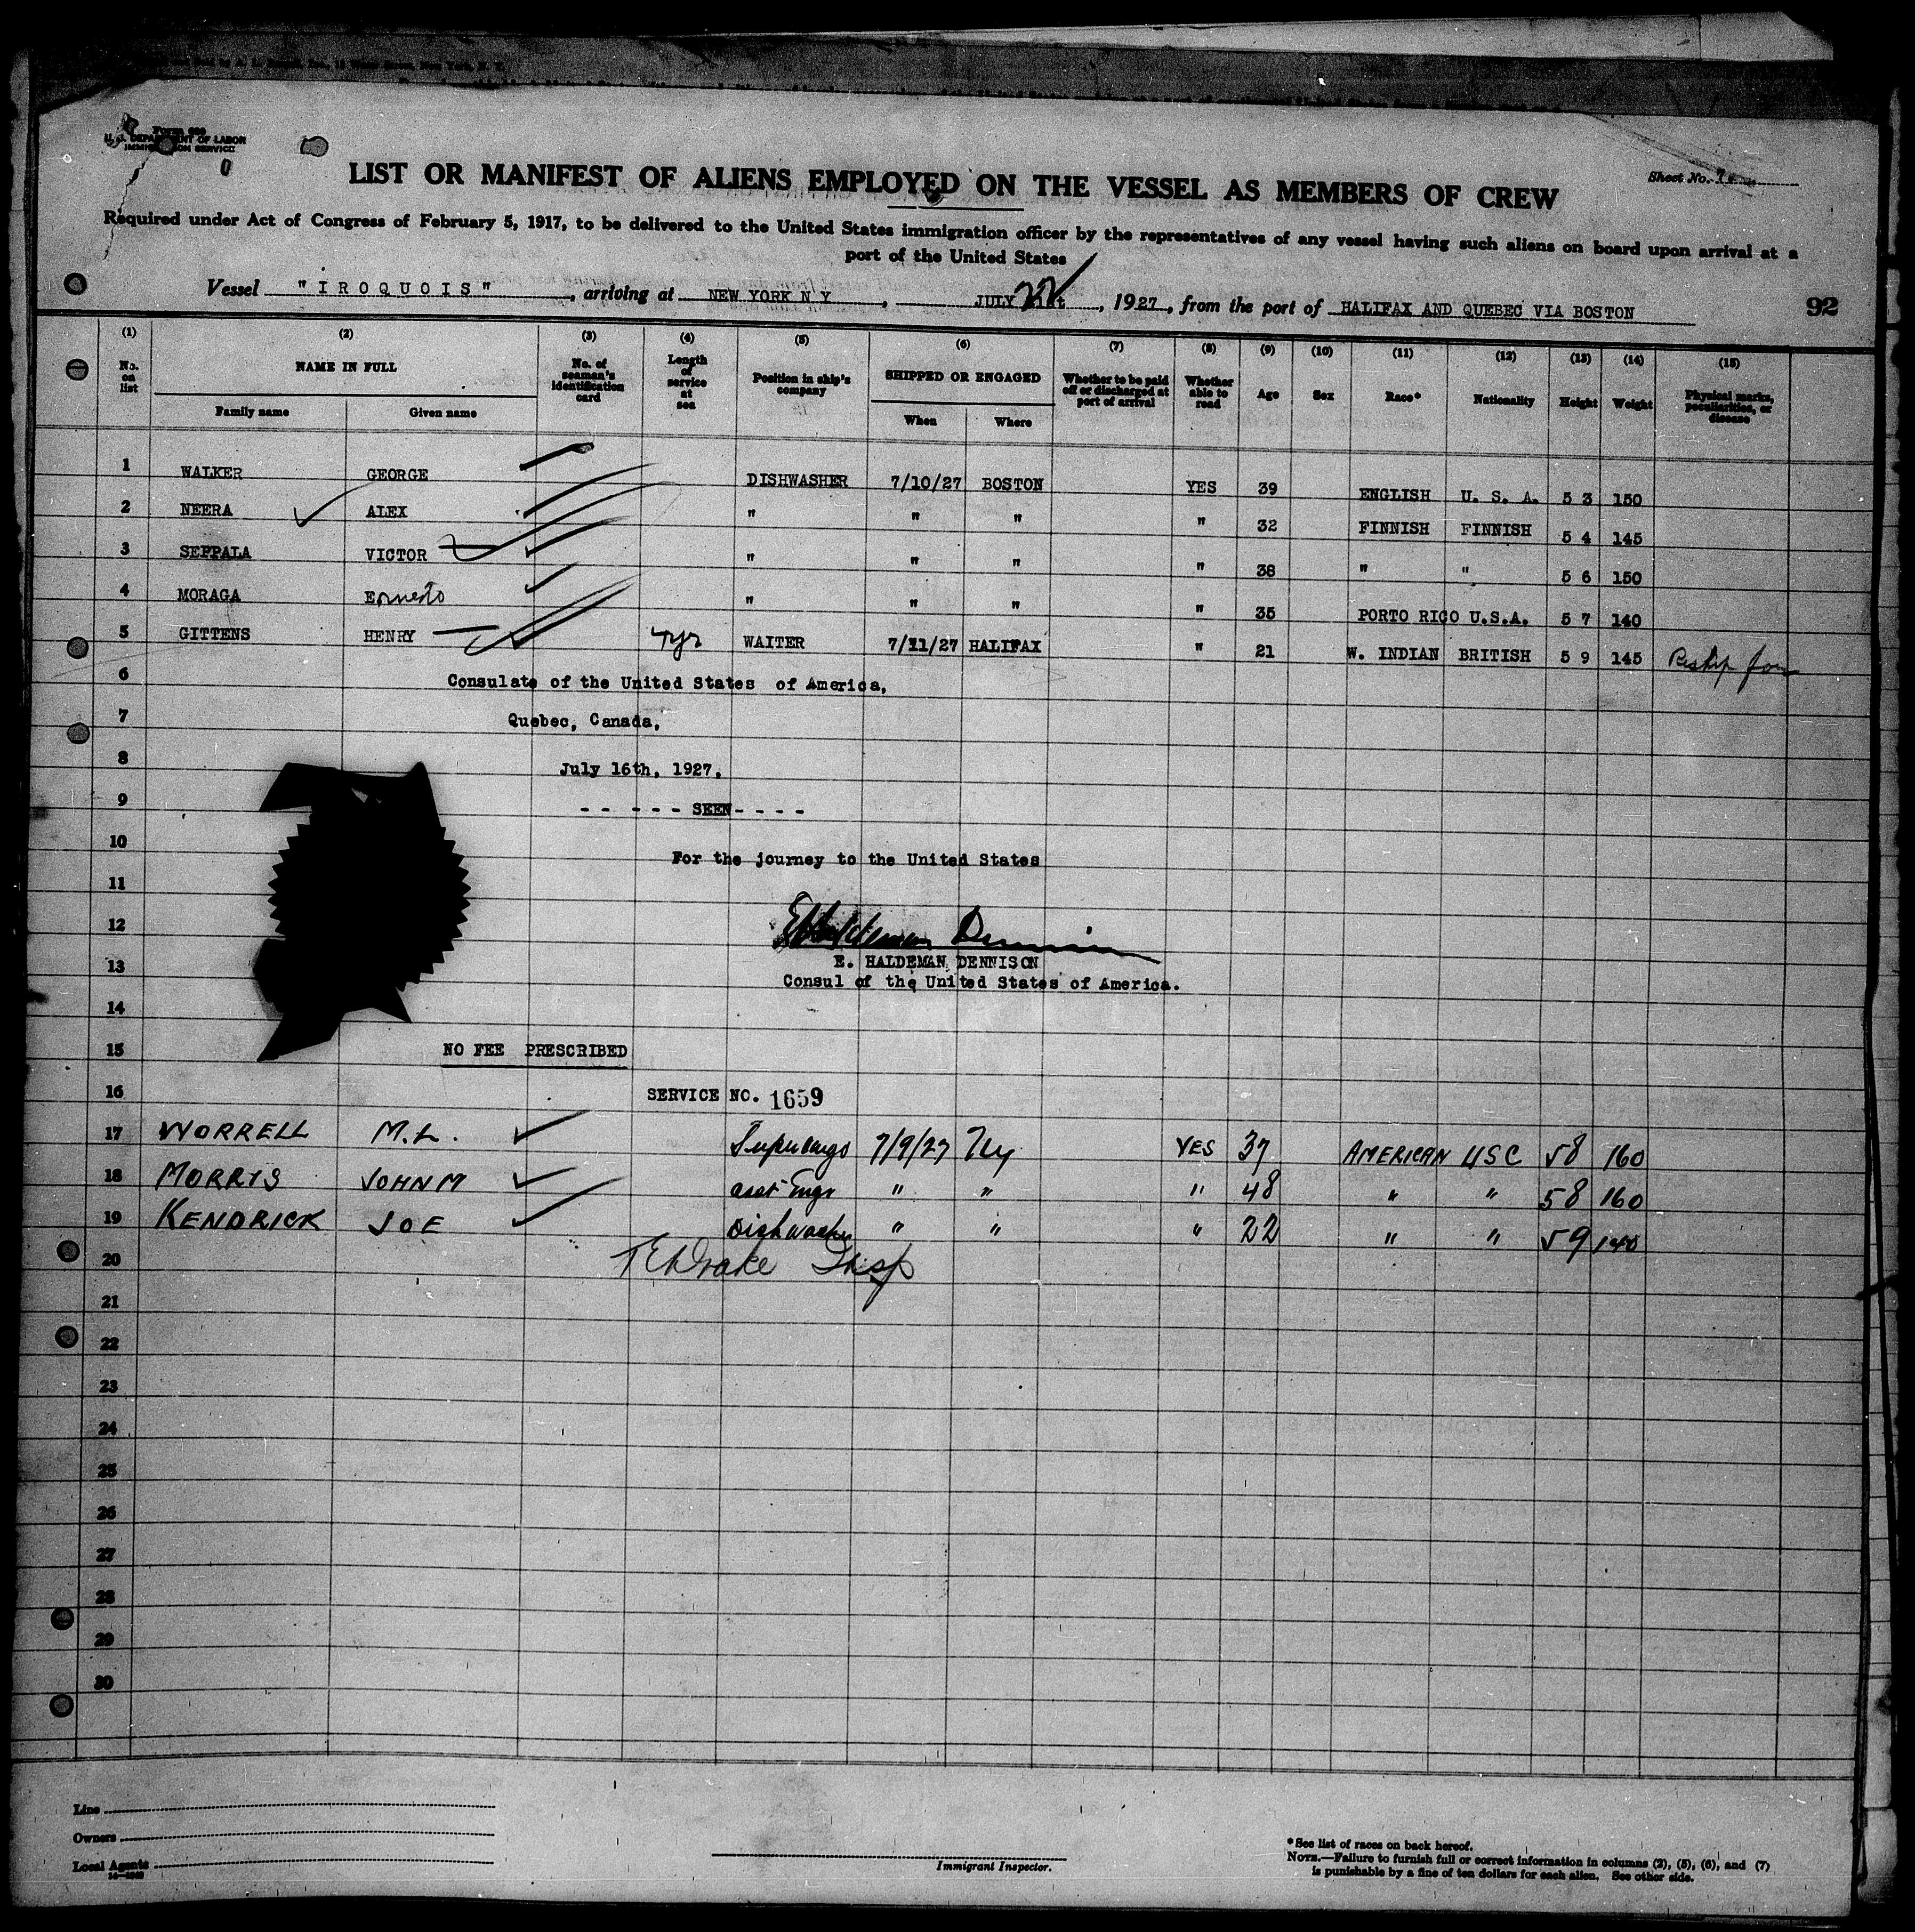 Form 689
U. S. DEPARTMENT OF LABOR
IMMIGRATION SERVICE
Sheet No.
LIST OR MANIFEST OF ALIENS EMPLOYED ON THE VESSEL AS MEMBERS OF CREW
Required under Act of Congress of February 5, 1917, to be delivered to the United States immigration officer by the representatives of any vessel having such aliens on board upon arrival at a
port of the United States
Vessel "IROQUOIS", arriving at NEW YORK N Y, JULY 22, 1927, from the port of HALIFAX AND QUEBEC VIA BOSTON 92
(1) (2) (3) (4) (5) (6) (7) (8) (9) (10) (11) (12) (13) (14) (15)
No. on list NAME IN FULL No. of seaman's identification card Length of service at sea Position in ship's company SHIPPED OR ENGAGED Whether to be paid off or discharged at port of arrival Whether able to read Age Sex Race* Nationality Height Weight Physical marks, peculiarities, or disease
Family name Given name When Where
1 WALKER GEORGE DISHWASHER 7/10/27 BOSTON YES 39 ENGLISH U. S. A. 5 3 150
2 NEERA ALEX " " " " 32 FINNISH FINNISH 5 4 145
3 SEPPALA VICTOR " " " " 38 " " 5 6 150
4 MORAGA Ernesto " " " " 35 PORTO RICO U.S.A. 5 7 140
5 GITTENS HENRY 4yr WAITER 7/11/27 HALIFAX " 21 W. INDIAN BRITISH 5 9 145
6 Consulate of the United States of America,
7 Quebec, Canada,
8 July 16th, 1927,
9 - - - - - SEEN - - - -
10 For the journey to the United States
11
12
13 E. HALDEMAN DENNISON
Consul of the United States of America.
14
15 NO FEE PRESCRIBED
16 SERVICE NO. 1659
17 WORRELL M.L. 7/9/27 NY YES 37 AMERICAN USC 5 8 160
18 MORRIS JOHN M asst Engr " " " 48 " " 5 8 160
19 KENDRICK JOE Dishwasher " " " 22 " " 5 9 140
20 Drake Insp
21
22
23
24
25
26
27
28
29
30
Line
Owners
Local Agents
Immigrant Inspector.
*See list of races on back hereof.
NOTE.—Failure to furnish full or correct information in columns (2), (5), (6), and (7)
is punishable by a fine of ten dollars for each alien. See other side.